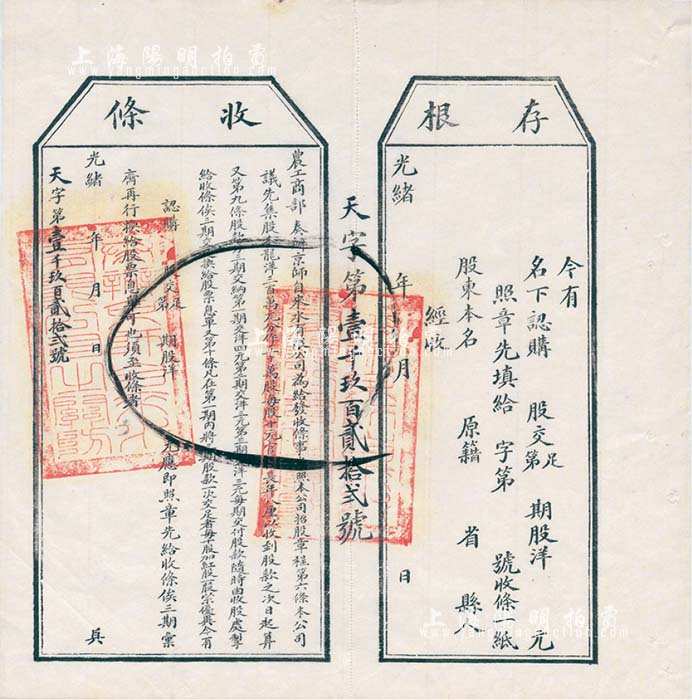 上海陽明拍賣
www.yangmingauction.com
存根
今有
名下認購 股交足第 期股洋 元
照章先填給 字第 號收條 紙
股東本名 原籍 省 縣 人
經收
光緒 年 月 日
天字第壹千玖百貳拾弍號
收條
農工商部 奏辦京師自來水有限公司為給發收條事 照本公司招股章程第六條本公司
議先集股本龍洋三百萬元分作 十萬股每股十元官 長年八厘以收到股款之次日起算
又第九條股款 三期交納第一期交洋四元第二期交洋三元第三期 洋三元每期交付股款隨時由收股處掣
給收條俟三期交 換給股票息單又第十條凡在第一期內將 期股款一次交足者每 股加紅股一股以示優異今有
認購 股交足第 期股洋 元應即照章先給收條俟三期彙
齊再行換給股票息單可也須至收條者
光緒 年 月 日
天字第壹千玖百貳拾弍號
具